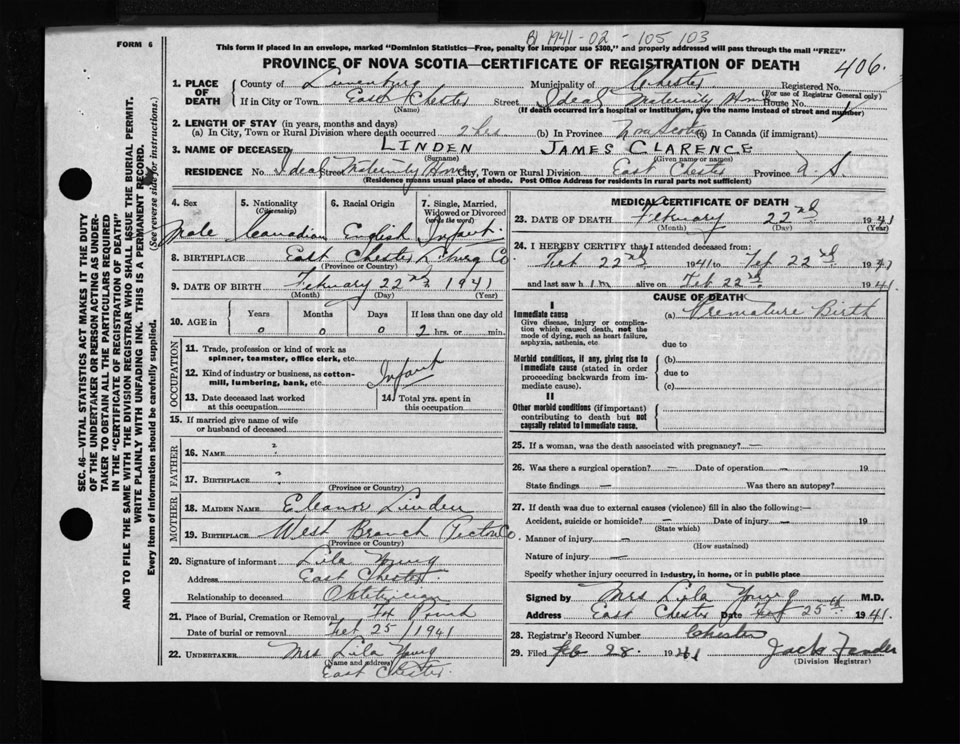 FORM 6
B 1941-02-105 103
This form if placed in an envelope, marked "Dominion Statistics—Free, penalty for improper use $300," and properly addressed will pass through the mail "FREE"
PROVINCE OF NOVA SCOTIA—CERTIFICATE OF REGISTRATION OF DEATH
406.
1. PLACE OF DEATH
County of Lunenburg Municipality of Chester Registered No.
(For use of Registrar General only)
If in City or Town East Chester Street Ideal Maternity Home House No.
(Name) (If death occurred in a hospital or institution, give the name instead of street and number)
2. LENGTH OF STAY (in years, months and days)
(a) In City, Town or Rural Division where death occurred 2 hrs (b) In Province Nova Scotia (c) In Canada (if immigrant)
3. NAME OF DECEASED LINDEN JAMES CLARENCE
(Surname) (Given name or names)
RESIDENCE No. Ideal Maternity Home City, Town or Rural Division East Chester Province N. S.
(Residence means usual place of abode. Post Office Address for residents in rural parts not sufficient)
4. Sex 5. Nationality (Citizenship) 6. Racial Origin 7. Single, Married, Widowed or Divorced (write the word)
Male Canadian English Infant.
8. BIRTHPLACE East Chester L'burg Co.
(Province or Country)
9. DATE OF BIRTH February 22nd 1941
(Month) (Day) (Year)
10. AGE in Years Months Days If less than one day old
0 0 0 2 hrs. or min.
OCCUPATION
11. Trade, profession or kind of work as spinner, teamster, office clerk, etc.
12. Kind of industry or business, as cotton-mill, lumbering, bank, etc. Infant
13. Date deceased last worked at this occupation 14. Total yrs. spent in this occupation
15. If married give name of wife or husband of deceased
FATHER
16. NAME ?
17. BIRTHPLACE ?
(Province or Country)
MOTHER
18. MAIDEN NAME Eleanor Linden
19. BIRTHPLACE West Branch Pictou Co.
(Province or Country)
20. Signature of informant Lila Young
Address East Chester.
Relationship to deceased Obstetrician
21. Place of Burial, Cremation or Removal Fox Point
Date of burial or removal Feb 25/1941
22. UNDERTAKER Mrs Lila Young
(Name and address)
East Chester.
MEDICAL CERTIFICATE OF DEATH
23. DATE OF DEATH February 22nd 1941
(Month) (Day) (Year)
24. I HEREBY CERTIFY that I attended deceased from:
Feb 22nd 1941 to Feb 22nd 1941
and last saw him alive on Feb 22nd 1941.
CAUSE OF DEATH
I
Immediate cause (a) Premature Birth
Give disease, injury or complication which caused death, not the mode of dying, such as heart failure, asphyxia, asthenia, etc.
due to
Morbid conditions, if any, giving rise to immediate cause (stated in order proceeding backwards from immediate cause).
(b)
due to
(c)
II
Other morbid conditions (if important) contributing to death but not causally related to immediate cause.
25. If a woman, was the death associated with pregnancy? —
26. Was there a surgical operation? — Date of operation — 19
State findings — Was there an autopsy? —
27. If death was due to external causes (violence) fill in also the following:—
Accident, suicide or homicide? — Date of injury — 19
(State which)
Manner of injury —
(How sustained)
Nature of injury —
Specify whether injury occurred in industry, in home, or in public place
Signed by Mrs Lila Young M.D.
Address East Chester Date Feb 25th 1941
28. Registrar's Record Number Chester
29. Filed Feb 28. 1941 Jack
(Division Registrar)
SEC. 46—VITAL STATISTICS ACT MAKES IT THE DUTY
OF THE UNDERTAKER OR PERSON ACTING AS UNDER-
TAKER TO OBTAIN ALL THE PARTICULARS REQUIRED
IN THE "CERTIFICATE OF REGISTRATION OF DEATH"
AND TO FILE THE SAME WITH THE DIVISION REGISTRAR WHO SHALL ISSUE THE BURIAL PERMIT.
WRITE PLAINLY WITH UNFADING INK. THIS IS A PERMANENT RECORD.
Every item of information should be carefully supplied. (See reverse side for instructions.)